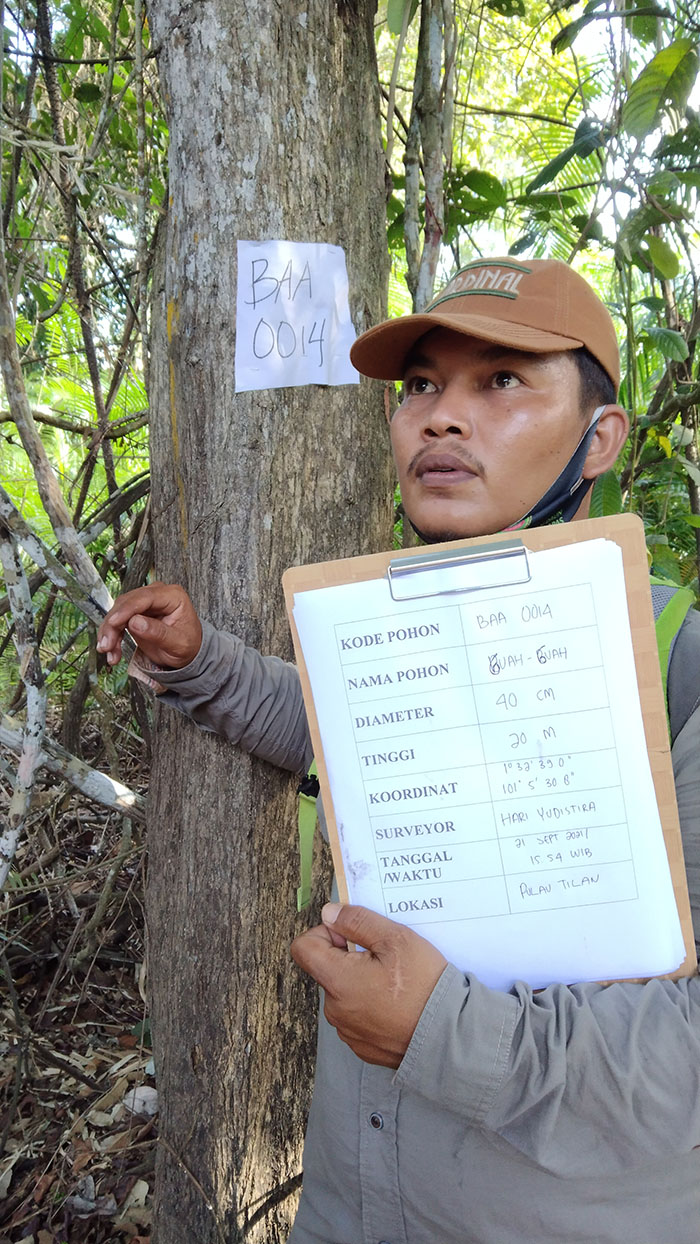 BAA
0014
KODE POHON BAA 0014
NAMA POHON BUAH-BUAH
DIAMETER 40 CM
TINGGI 20 M
KOORDINAT 1° 32' 39 0"
101° 5' 30 8"
SURVEYOR HARI YUDISTIRA
TANGGAL 21 SEPT 2021/
/WAKTU 15 54 WIB
LOKASI PULAU TILAN